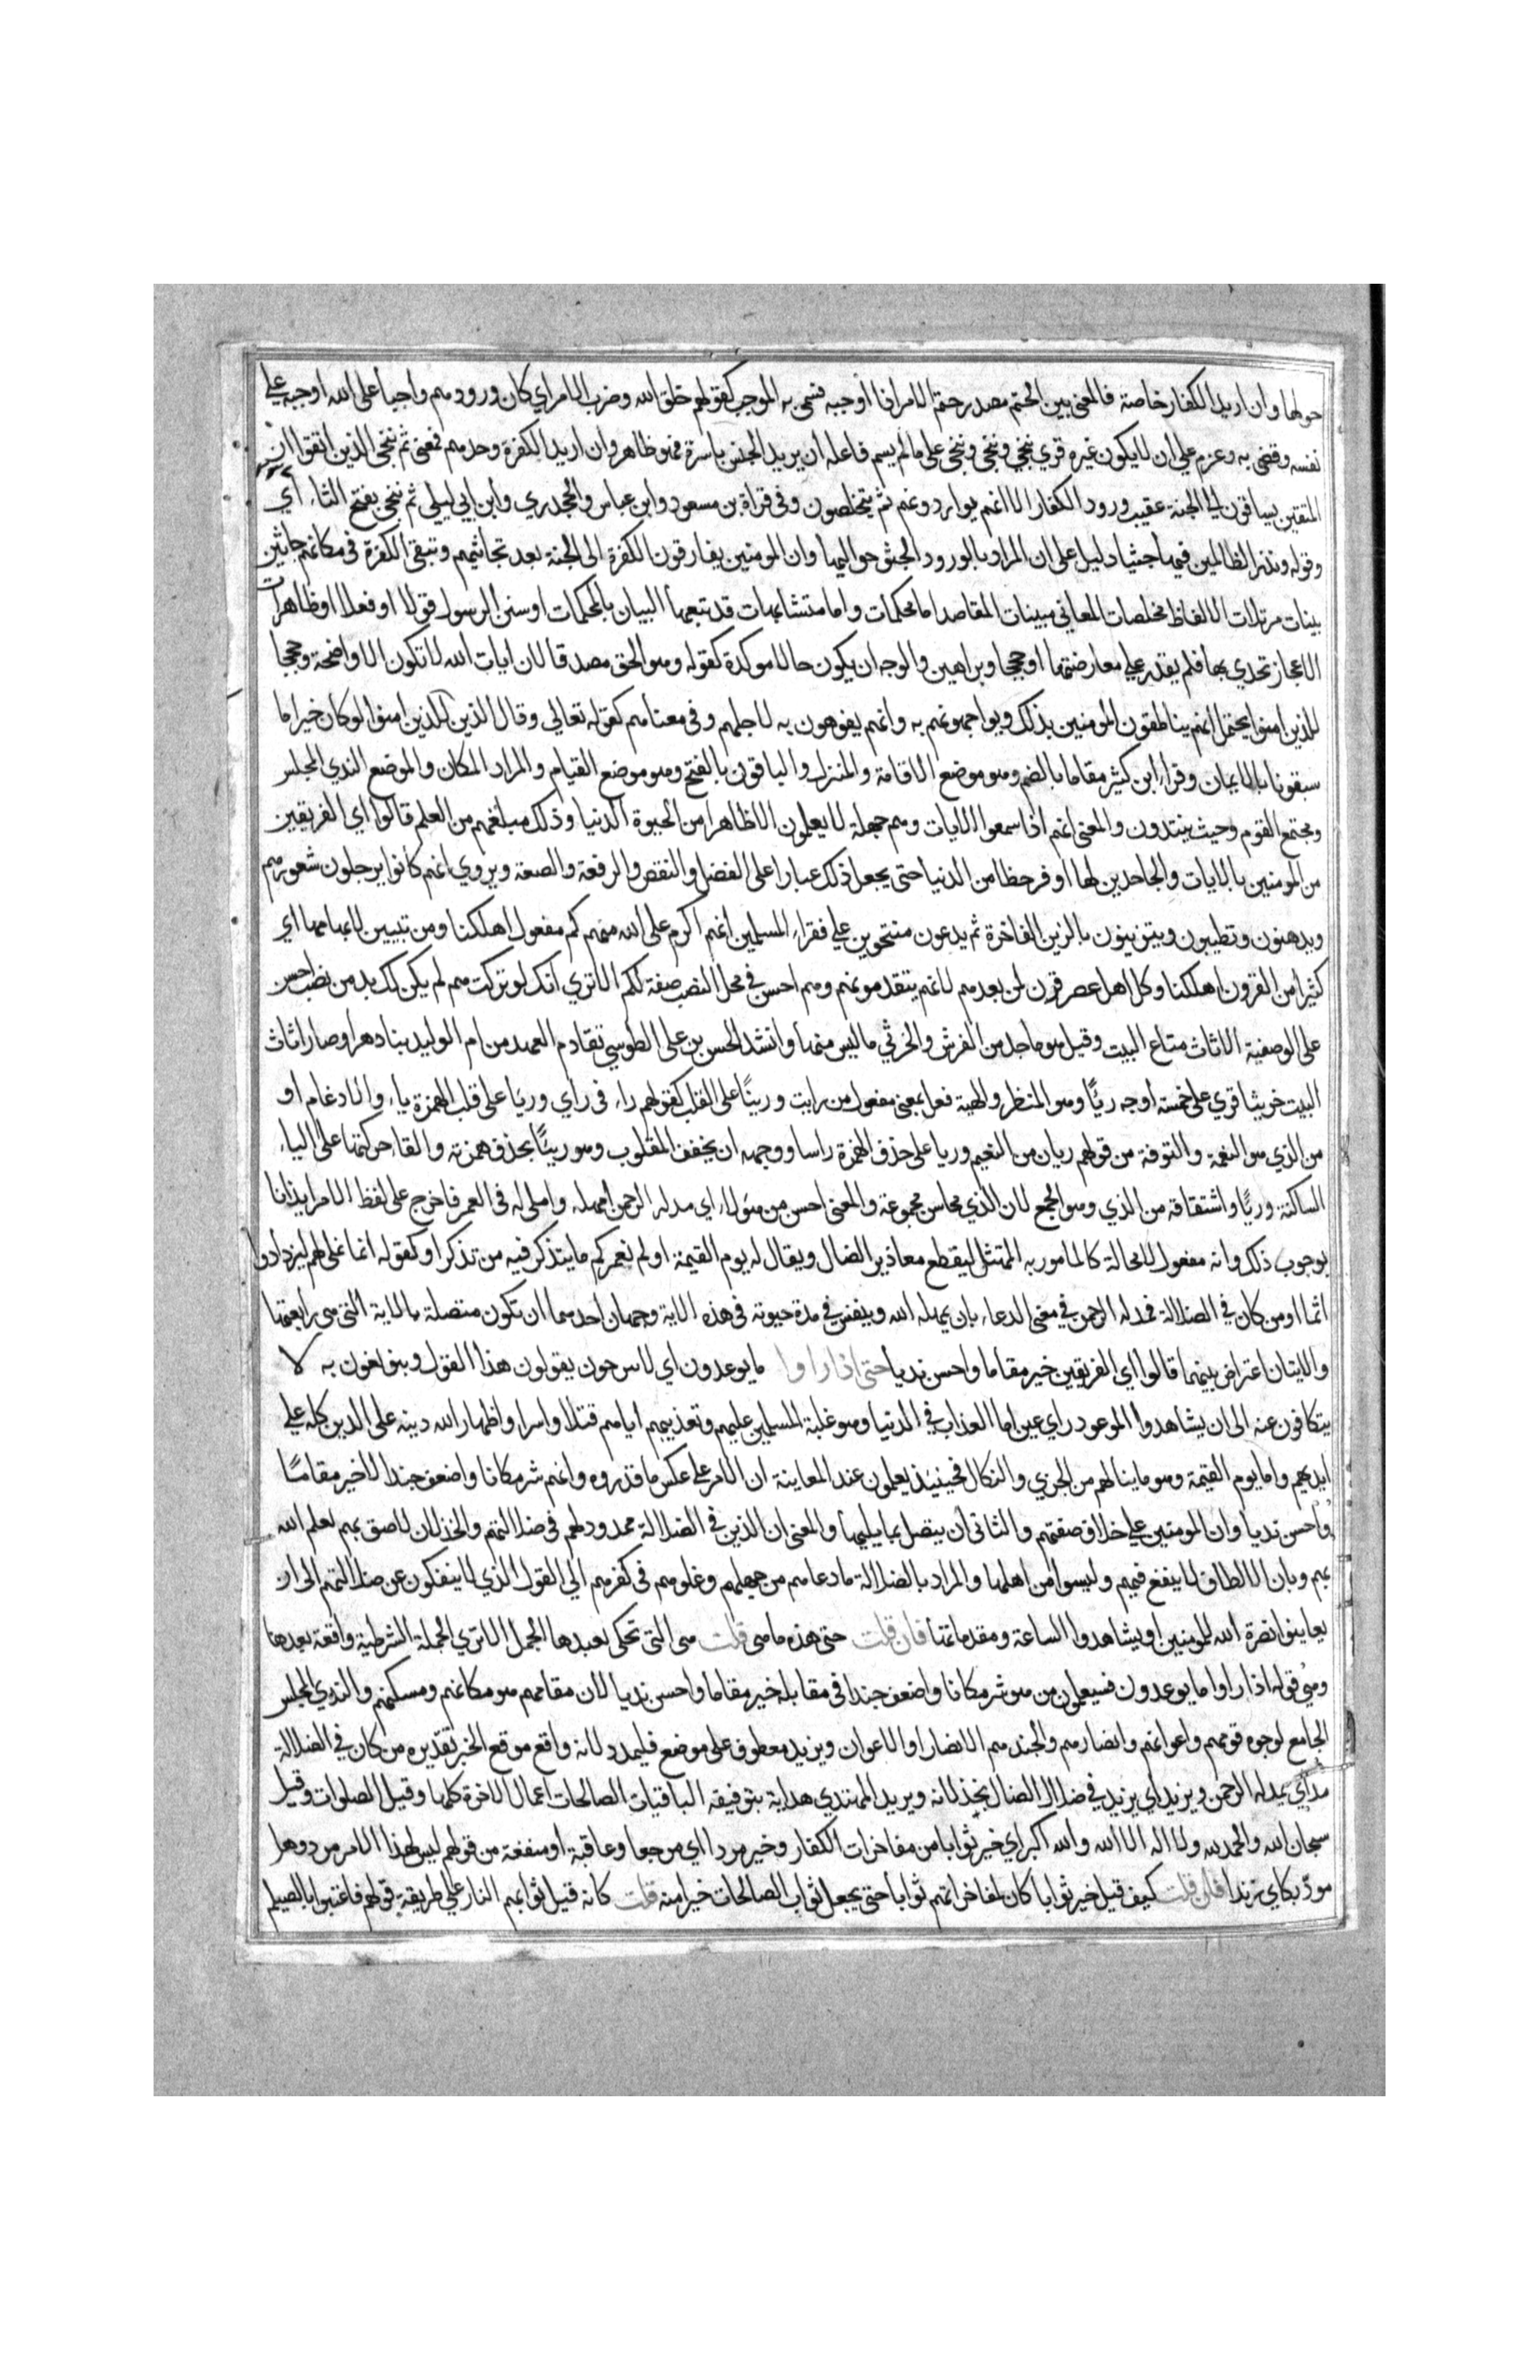 حولها وان اريد الكفار خاصة فالمعنى بين الحتم مصدر حتم الامر اذا اوجبه فسمى به الموجب كقولهم خلق الله وضرب الامير اي كان ورودهم واجبا على الله اوجبه على
نفسه وقضى به وعزم على ان لا يكون غيره قري ننجي وننجى وينجي وينجى على ما لم يسم فاعله ان يريد الجنس باسره فهو ظاهر وان اريد الكفرة وحدهم فمعنى ثم ننجى الذين اتقوا ان
المتقين يساقون الى الجنة عقيب ورود الكفار لا انهم يواردونهم ثم يتخلصون وفى قراة بن مسعود وابن عباس والجحدري وابن ابي ليلى ثم ننجى بفتح الثاء اي
وقوله ونذر الظالمين فيها جثيا دليل على ان المراد بالورود الجثو حواليها وان المومنين يفارقون الكفرة الى الجنة بعد تجاثيهم وتبقى الكفرة فى مكانهم جاثين
بينات مرتلات الالفاظ مخلصات المعاني مبينات المقاصد اما محكمات واما متشابهات قد تبعها البيان بالمحكمات او سنن الرسول قولا او فعلا او ظاهرات
الاعجاز تحدي بها فلم يقدر على معارضتها او حججا وبراهين والوجه ان يكون حالا موكدة كقوله وهو الحق مصدقا لان ايات الله لا تكون الا واضحة وحججا
للذين امنوا يحتمل انهم يناطقون المومنين بذلك ويواجهونهم به وانهم يفوهون به لاجلهم وفى معناهم كقوله تعالى وقال الذين للذين امنوا لو كان خيرا ما
سبقونا بالايمان وقرا ابن كثير مقاما بالضم وهو موضع الاقامة والمنزل والباقون بالفتح وهو موضع القيام والمراد المكان والموضع الندي المجلس
ومجتمع القوم وحيث ينتدون والمعنى انهم اذا سمعوا الايات وهم جهلة لا يعلمون الا ظاهرا من الحيوة الدنيا وذلك مبلغهم من العلم قالوا اي الفريقين
من المومنين بالايات والجاحدين لها اوفر حظا من الدنيا حتى يجعل ذلك عيارا على الفضل والنقص والرفعة والضعة ويروى انهم كانوا يرجلون شعورهم
ويدهنون وتطيبون ويتزينون بالزين الفاخرة ثم يدعون مفتخرين على فقراء المسلمين انهم اكرم على الله منهم كم مفعول اهلكنا ومن تبيين لابهامها اي
كثيرا من القرون اهلكنا وكل اهل عصر قرن لمن بعدهم لانهم يتقدمونهم وهم احسن في محل النصب صفة لكم الا ترى انك لو تركت هم لم يكن لك بد من نصب احسن
على الوصفية الاثاث متاع البيت وقيل هو ما جد من الفرش والخرثي ما ليس منها وانشد الحسن بن على الطوسي تقادم العهد من ام الوليد بنا دهرا وصار اثاث
البيت خرثيا قري على خمسة اوجه ريّا وهو المنظر والهيئة فعل بمعنى مفعول من رايت وريئًا على القلب كقولهم راء فى راي وريا على قلب الهمزة ياء والادغام او
من الذي هو النعمة والتوفة من قولهم ريان من النعيم وريا على حذف الهمزة راسا ووجهه ان يخفف المقلوب وهو ريئًا بحذف همزته والقاء حركتها على الياء
الساكنة وريًا واشتقاقه من الذي وهو الجمع لان الذي محاسن مجموعة والمعنى احسن من هولاء اي مد له الرحمن امهله واملى له فى العمر فاخرج على لفظ الامر ايذانا
بوجوب ذلك وانه مفعول لا محالة كالمامور به الممتثل ليقطع معاذير الضال ويقال له يوم القيمة اولم نعمركم ما يتذكر فيه من تذكر او كقوله انما نملى لهم ليزدادوا
اثما او من كان في الضلالة فمد له الرحمن في معنى الدعاء بان يمهله الله وينفس في مدة حيوته فى هذه الاية وجهان احدهما ان تكون متصلة بالاية التى هى رابعتها
والايتان اعتراض بينهما قالوا اي الفريقين خير مقاما واحسن نديا حتى اذا راوا ما يوعدون اي لا يبرحون يقولون هذا القول ويتولعون به لا
يتكافون عنه الى ان يشاهدوا الموعود راي عين اما العذاب في الدنيا وهو غلبة المسلمين عليهم وتعذيبهم اياهم قتلا واسرا واظهار الله دينه على الدين كله على
ايديهم واما يوم القيمة وهو ما ينالهم من الخزي والنكال فحينئذ يعلمون عند المعاينة ان الامر على عكس ما قدروه وانهم شر مكانا واضعف جندا لا خير مقامًا
واحسن نديا وان المومنين على خلاف صفتهم والثانى ان يتصل بما يليها والمعنى ان الذين في الضلالة ممدود لهم فى ضلالتهم والخذلان لاصق بهم لعلم الله
بهم وبان الالطاف لا ينفع فيهم وليسوا من اهلها والمراد بالضلالة ما دعاهم من جهلهم وغلوهم فى كفرهم الى القول الذي لا ينفكون عن ضلالتهم الى ان
يعاينوا نصرة الله للمومنين او يشاهدوا الساعة ومقدماتها فان قلت حتى هذه ما هى قلت هى التى تحكى بعدها الجمل الا ترى الجملة الشرطية واقعة بعدها
وهى قوله اذا راوا ما يوعدون فسيعلمون من هو شر مكانا واضعف جندا فى مقابلة خير مقاما واحسن نديا لان مقامهم هو مكانهم ومسكنهم والندي المجلس
الجامع لوجوه قومهم واعوانهم وانصارهم والجند هم الانصار او الاعوان ويزيد معطوف على موضع فليمدد لانه واقع موقع الخبر تقديره من كان في الضلالة
مد اي يمد له الرحمن ويزيد اي يزيد في ضلال الضال بخذلانه ويريد المهتدي هداية بتوفيقه الباقيات الصالحات اعمال الاخرة كلها وقيل الصلوات وقيل
سبحان الله والحمد لله ولا اله الا الله والله اكبر اي خير ثوابا من مفاخرات الكفار وخير مردا اي مرجعا وعاقبة او منفعة من قولهم ليس لهذا الامر مرد وهل
مردّ بكاي زندا فان قلت كيف قيل خير ثوابا كان لمفاخراتهم ثوابا حتى يجعل ثواب الصالحات خيرا منه قلت كانه قيل ثوابهم النار على طريقة قولهم فاعتبوا بالصيلم